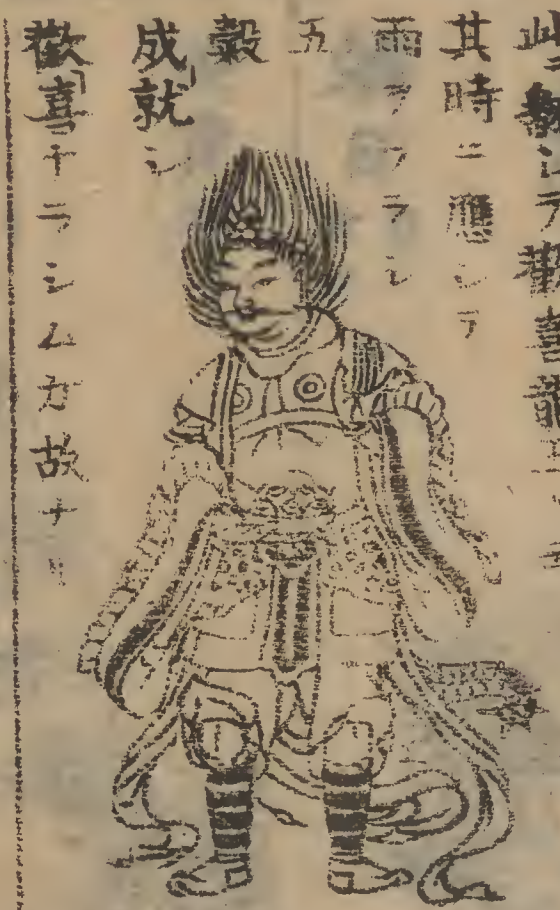 此ニ翻シテ歡喜龍
其時ニ應シテ
雨ヲフラシ
五
穀
成就シ
歡喜ナラシムガ故ナリ